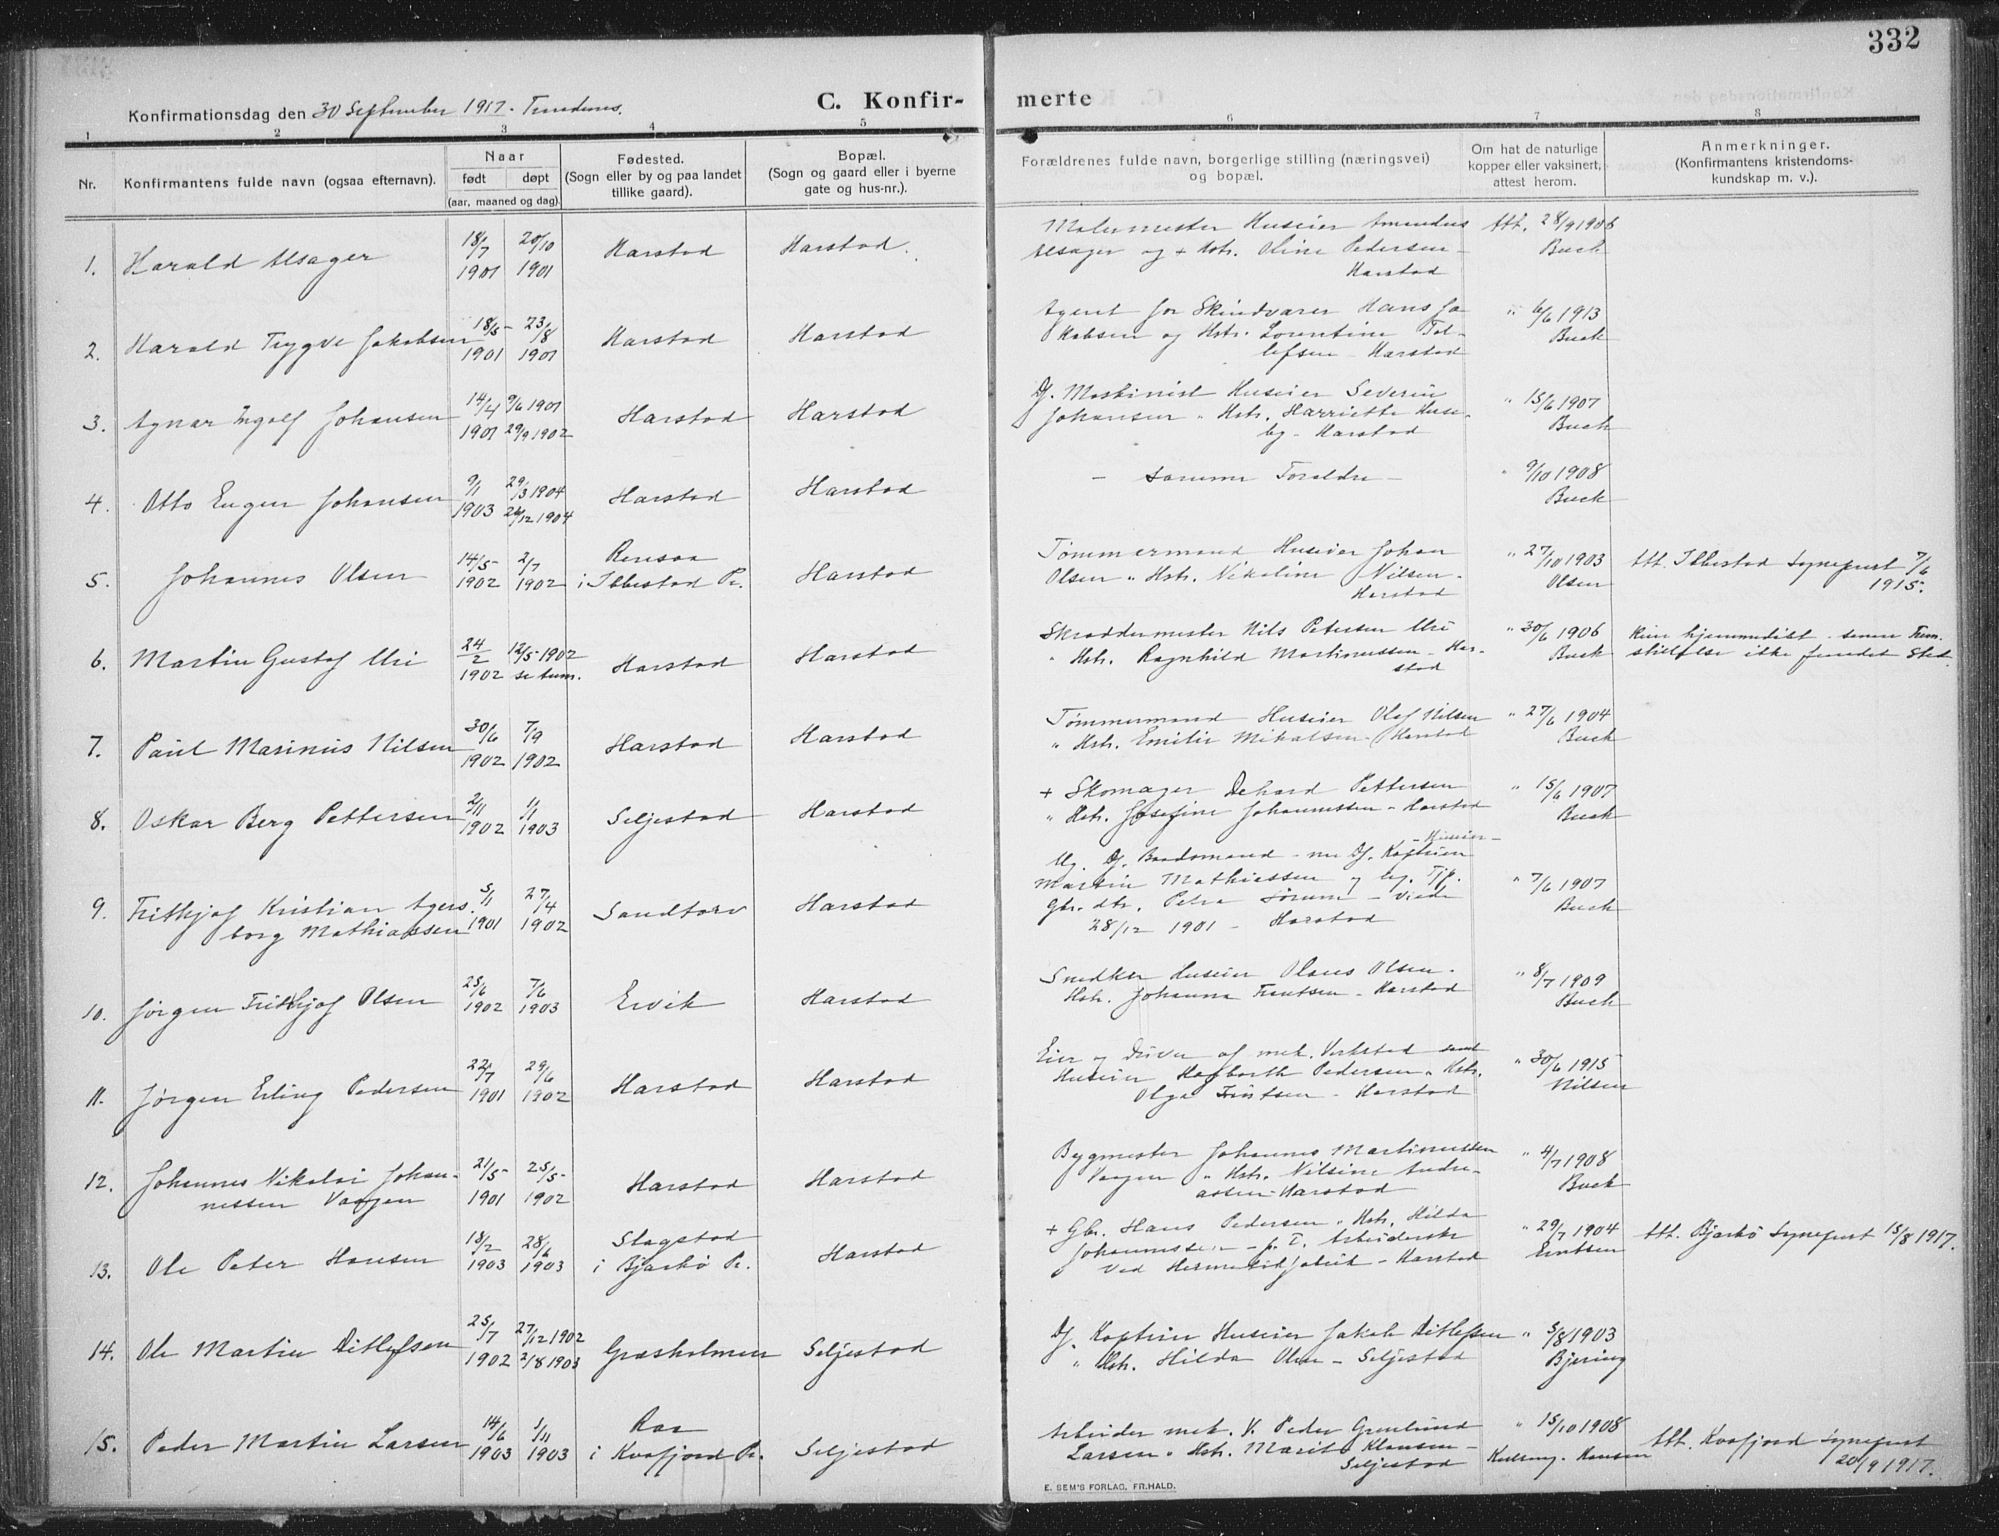 332
Konfirmationsdag den 30 September 1917. Trondenes.
C. Konfir- merte
1 2 3 4 5 6 7 8
Nr.
Konfirmantens fulde navn (ogsaa efternavn).
Naar
født døpt
(aar, maaned og dag).
Fødested.
(Sogn eller by og paa landet
tillike gaard).
Bopæl.
(Sogn og gaard eller i byerne
gate og hus-nr.).
Forældrenes fulde navn, borgerlige stilling (næringsvei)
og bopæl.
Om hat de naturlige
kopper eller vaksinert,
attest herom.
Anmerkninger.
(Konfirmantens kristendoms-
kundskap m. v.).
1. Harald Alsager 18/7 1901 20/10 1901 Harstad Harstad.
Malermester Huseier Amandus
Alsager og + Hstr. Oline Pedersen -
Harstad
Att. 28/9 1906
Buck
2. Harald Trygve Jakobsen 18/5 1901 23/8 1901 Harstad Harstad
Agent for Skindvarer Hans Ja
kobsen og Hstr. Lorentine Tol-
lefsen - Harstad
" 6/6 1913
Buck
3. Agnar Ingolf Johansen 14/4 1901 9/6 1901 29/9 1902 Harstad Harstad
Df. Maskinist Huseier Severin
Johansen " Hstr. Harriette Huse-
by - Harstad
" 15/6 1907
Buck
4. Otto Eugen Johansen 9/1 1903 29/3 1904 26/12 1904 Harstad Harstad
- samme Foræld​re -
" 9/10 1908
Buck
5. Johannes Olsen 14/5 1902 2/7 1902 Rensaa
i Ibbestad Pr. Harstad
Tømmermand Huseier Johan
Olsen " Hstr. Nikoline Nilsen -
Harstad
" 27/10 1903
Olsen
Att. Ibbestad Sogneprest 7/6
1915.
6. Martin Gustaf Uri 24/2 1902 12/5 1902 Harstad Harstad
Skræddermester Nils Petersen Uri
" Hstr. Ragnhild Martinussen - Har-
stad
" 30/6 1906
Buck
Kun hjemmedøbt - senere Frem-
stillelse ikke fundet Sted.
7. Paul Marinius Nilsen 30/6 1902 7/9 1902 Harstad Harstad
Tømmermand Huseier Olaf Nilsen
" Hstr. Emilie Mikalsen - Harstad
" 27/6 1904
Buck
8. Oskar Berg Pettersen 2/11 1902 1/1 1903 Seljestad Harstad
+ Skomager Dehard Pettersen
" Hstr. Josefine Johannessen - Harstad
" 15/6 1907
Buck
9. Frithjof Kristian Agers-
borg Mathiassen 5/11 1901 27/4 1902 Sandtorv Harstad
- Huseier -
Ug. Df. Baadsmand - nu Df. Kaptein
Martin Mathiassen og Ug. Tjp.
Gbr. dtr. Petra Sørum - Viede
28/12 1901 - Harstad
" 7/6 1907
Buck
10. Jørgen Frithjof Olsen 25/6 1902 7/6 1903 Ervik Harstad
Snedker Huseier Olaus Olsen.
Hstr. Johanna Frantsen - Harstad
" 8/7 1909
Buck
11. Jørgen Erling Pedersen 22/7 1901 29/6 1902 Harstad Harstad
Eier og Driver af mek. Verksted samt
Huseier Hagbarth Pedersen " Hstr.
Olga Frantsen - Harstad
" 30/6 1915
Nilsen
12. Johannes Nikolai Johan-
nessen Vaagen 21/5 1901 25/5 1902 Harstad Harstad
Bygmester Johannes Martinussen
Vaagen " Hstr. Nilsine Andre-
assen - Harstad
" 4/7 1908
Buck
13. Ole Peter Hansen 13/2 1903 28/6 1903 Slagstad
i Bjarkø Pr. Harstad
+ Gbr. Hans Pedersen " Hstr. Hilda
Johannessen - p. T. Arbeiderske
ved Hermetikfabrik - Harstad
" 29/7 1904
Att. Bjarkø Sogneprest 15/8 1917.
14. Ole Martin Ditlefsen 25/7 1902 27/12 1902 2/8 1903 Grasholmen Seljestad
Df. Kaptein Huseier Jakob Ditlefsen
" Hstr. Hilda Olsen - Seljestad
" 5/8 1903
Bjering
15. Peder Martin Larsen 14/6 1903 1/11 1903 Raa
i Kvæfjord Pr. Seljestad
Arbeider mek. V. Peder Grønlund
Larsen " Hstr. Marit Klausen -
Seljestad
" 15/10 1908
Hansen
Att. Kvæfjord Sogneprest
20/9 1917.
E. SEM'S FORLAG, FR.HALD.